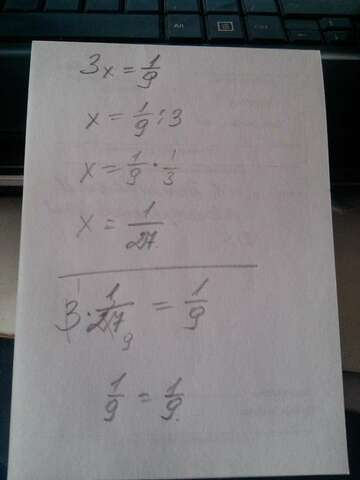 3x = 1/9
x = 1/9 : 3
x = 1/9 · 1/3
x = 1/27
3 · 1/27 9 = 1/9
1/9 = 1/9.